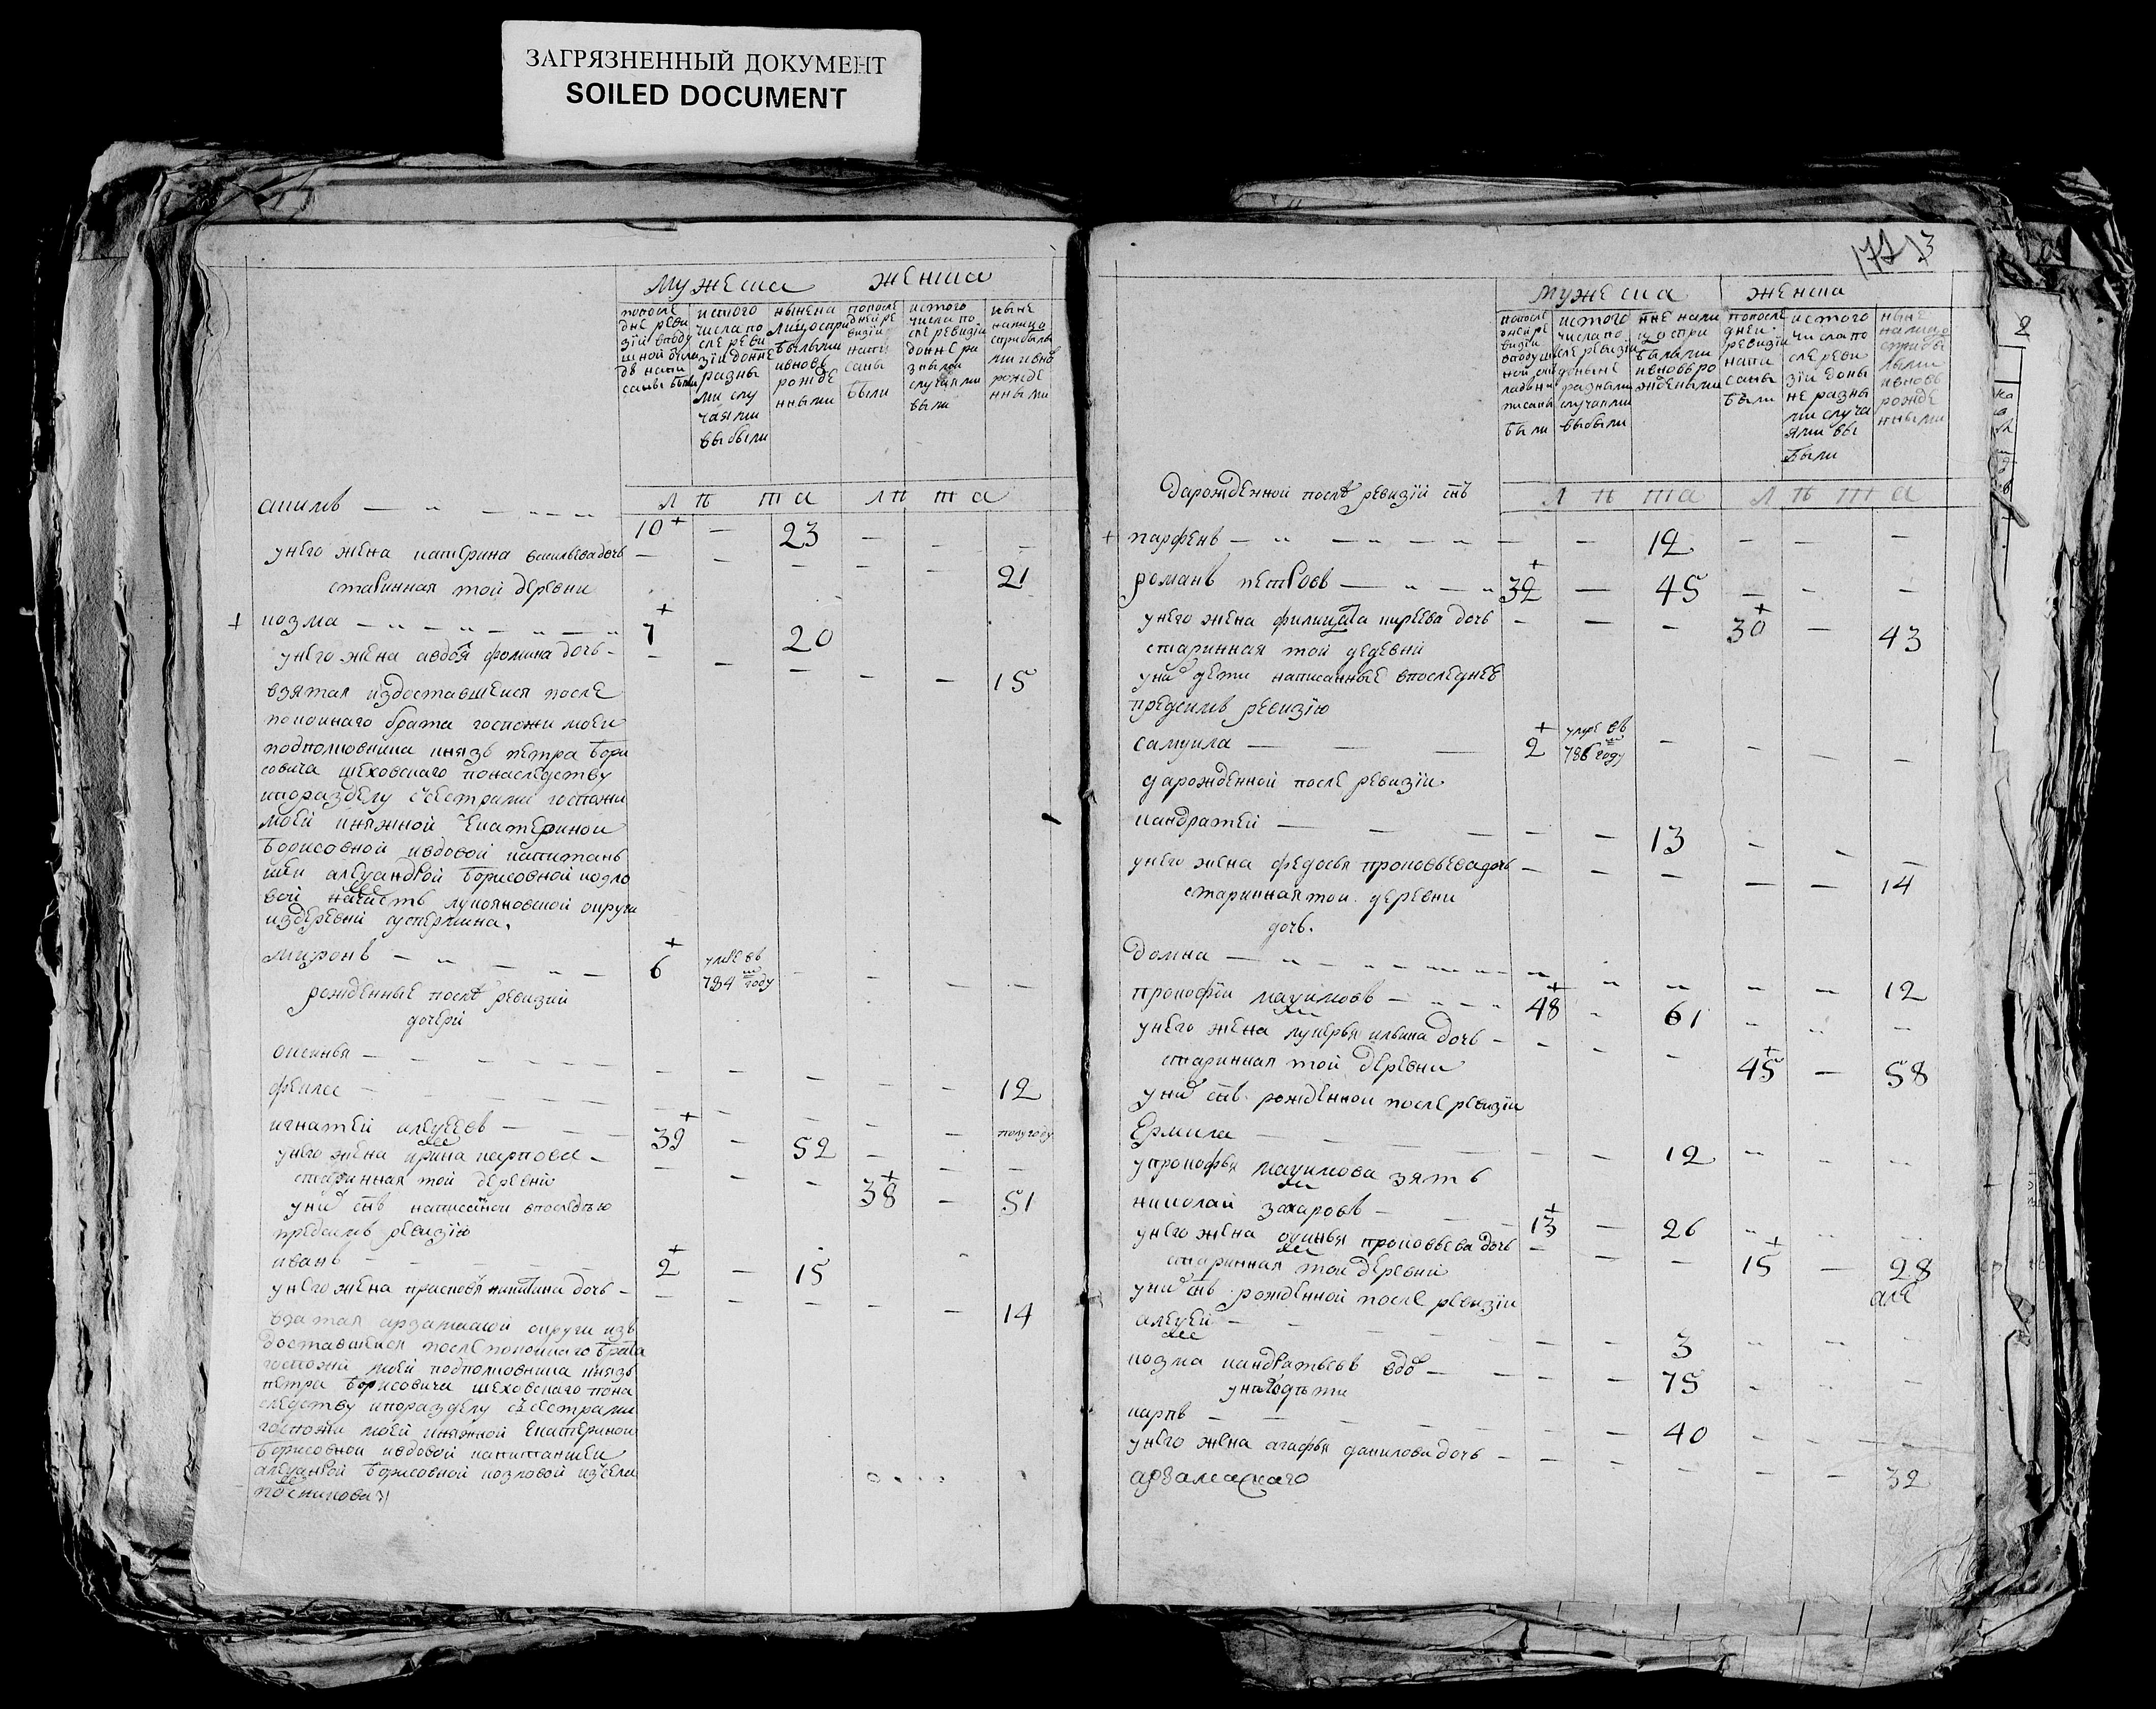 ЗАГРЯЗНЕННЫЙ ДОКУМЕНТ
SOILED DOCUMENT
мужеска женска
попосле
дне реви
зїи вподу
шной окла
де напи
саны были
истого
числа по
сле реви
зїи доныне
разны
ми слу
чаями
выбыли
ныне на
лицо спри
былыми
ивновь
рожде
нными
попосле
дней ре
визїи
напи
саны
были
истого
числа по
сле ревизїи
доныне ра
зными
случаями
выбыли
ныне
налицо
сприбылы
ми ивновь
рожде
нными
л ѣ т а л ѣ т а
акимъ 10 + — 23 — — —
унего жена катерина васильева дочь — — — — — 21
старинная той деревни
+ козма 7 + 20
унего жена авдотя фомина дочь — — — — — 15
взятая издоставшеися после
покоинаго брата госпожи моеи
подполковника князь петра бори
совича шеховскаго понаследству
ипоразделу сѣсестрами госпожи
моей княжной екатериной
борисовной ивдовой капитань
шеи александрой борисовной козло
вой лукояновской округи
издеревни
миронъ 6 + умре въ 784 м году — — — —
рожденные послѣ ревизии
дочери
оксинья — — — — — 12
фекла — — — — — полугоду
игнатей алексеевъ 39 + — 52 — — —
унего жена ирина карпова — — — 38 + — 51
старинная той деревни
уних снъ написанной впоследнюю
пред симъ ревизїю
иванъ 2 + — 15
унего жена прасковя никитина дочь — — — — — 14
взятая арзамаской округи изъ
доставшеися послепокоинаго брата
госпожи моей подполковника князь
петра борисовича шеховскаго пона
следству ипоразделу сѣсестрами
госпожи моей княжной екатериной
борисовной ивдовой капитаншеи
александрой борисовной козловой изсела
постникова
3
мужеска женска
попосле
дней ре
визїи
вподуш
ной ок
ладе на
писаны
были
истого
числа по
сле ревизїи
доныне
разными
случаями
выбыли
ныне нали
цо спри
былыми
ивновь ро
жденными
попосле
дней
ревизїи
напи
саны
были
истого
числа по
сле реви
зїи доны
не разны
ми случа
ями вы
были
ныне
налицо
сприбы
лыми
ивновь
рожде
нными
л ѣ т а л ѣ т а
дарожденной послѣ ревизїи снъ
+ парфенъ — — 12 — — —
романъ петровъ 32 + — 45 — — —
унего жена филицата кирѣева дочь — — — 30 + — 43
старинная той дедевни
уних дети написанные впоследнюю
предсимъ ревизїю
самуила 2 + умре въ 786 м году — — — —
дарожденной после ревизїи
кандратей — — 13 — — —
унего жена федосья прокофьева дочь — — — — — 14
старинная той деревни
дочь.
домна — — — — — 12
прокофїи максимовъ 48 + — 61 — — —
унего жена лукерья ильина дочь — — — 45 + — 58
старинная той деревни
уних снъ рожденной послѣ ревизїи
ермила — — 12 — — —
упрокофья максимова зять
николай захаровъ 13 + — 26 — — —
унего жена аксинья прокофьева дочь — — — 15 + — 28
старинная той деревни
уних снъ рожденной послѣ ревизїи
алексей — — 3 — — —
козма кандратьевъ вдов — — 75 — — —
унего дѣти
карпъ — — 40 — — —
унего жена агафья данилова дочь — — — — — 32
арзамаскаго